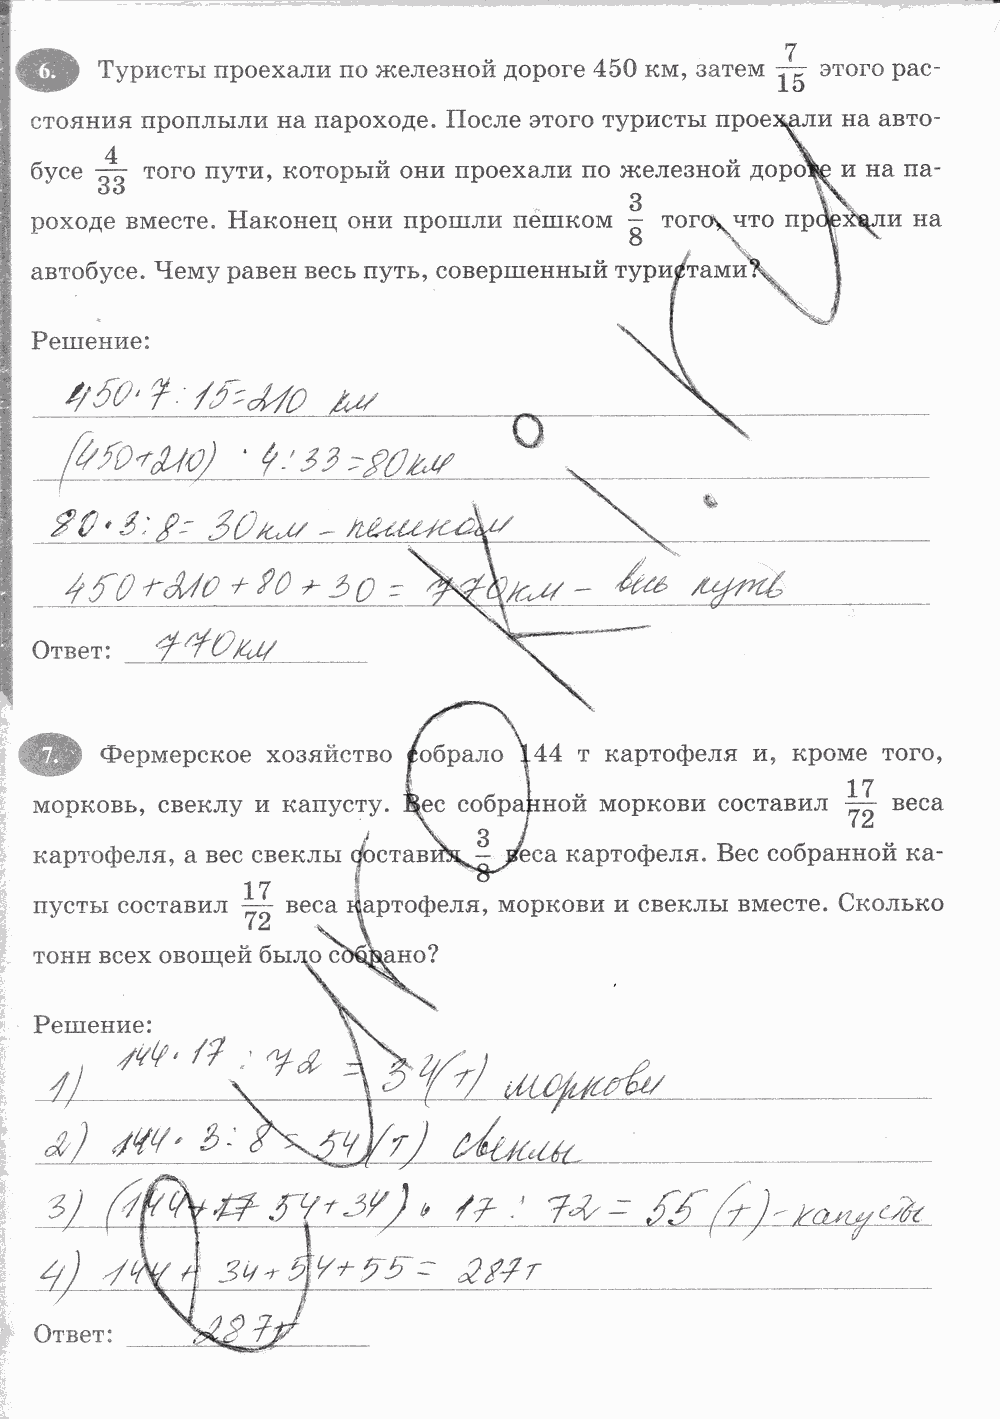 6. Туристы проехали по железной дороге 450 км, затем 7/15 этого рас-
стояния проплыли на пароходе. После этого туристы проехали на авто-
бусе 4/33 того пути, который они проехали по железной дороге и на па-
роходе вместе. Наконец они прошли пешком 3/8 того, что проехали на
автобусе. Чему равен весь путь, совершенный туристами?
Решение:
450·7:15=210 км
(450+210)·4:33=80км
80·3:8=30км – пешком
450+210+80+30=770км – весь путь
Ответ: 770км
7. Фермерское хозяйство собрало 144 т картофеля и, кроме того,
морковь, свеклу и капусту. Вес собранной моркови составил 17/72 веса
картофеля, а вес свеклы составил 3/8 веса картофеля. Вес собранной ка-
пусты составил 17/72 веса картофеля, моркови и свеклы вместе. Сколько
тонн всех овощей было собрано?
Решение:
1) 144·17:72=34(т) моркови
2) 144·3:8=54(т) свеклы
3) (144+54+34)·17:72=55(т)-капусты
4) 144+34+54+55=287т
Ответ: 287т